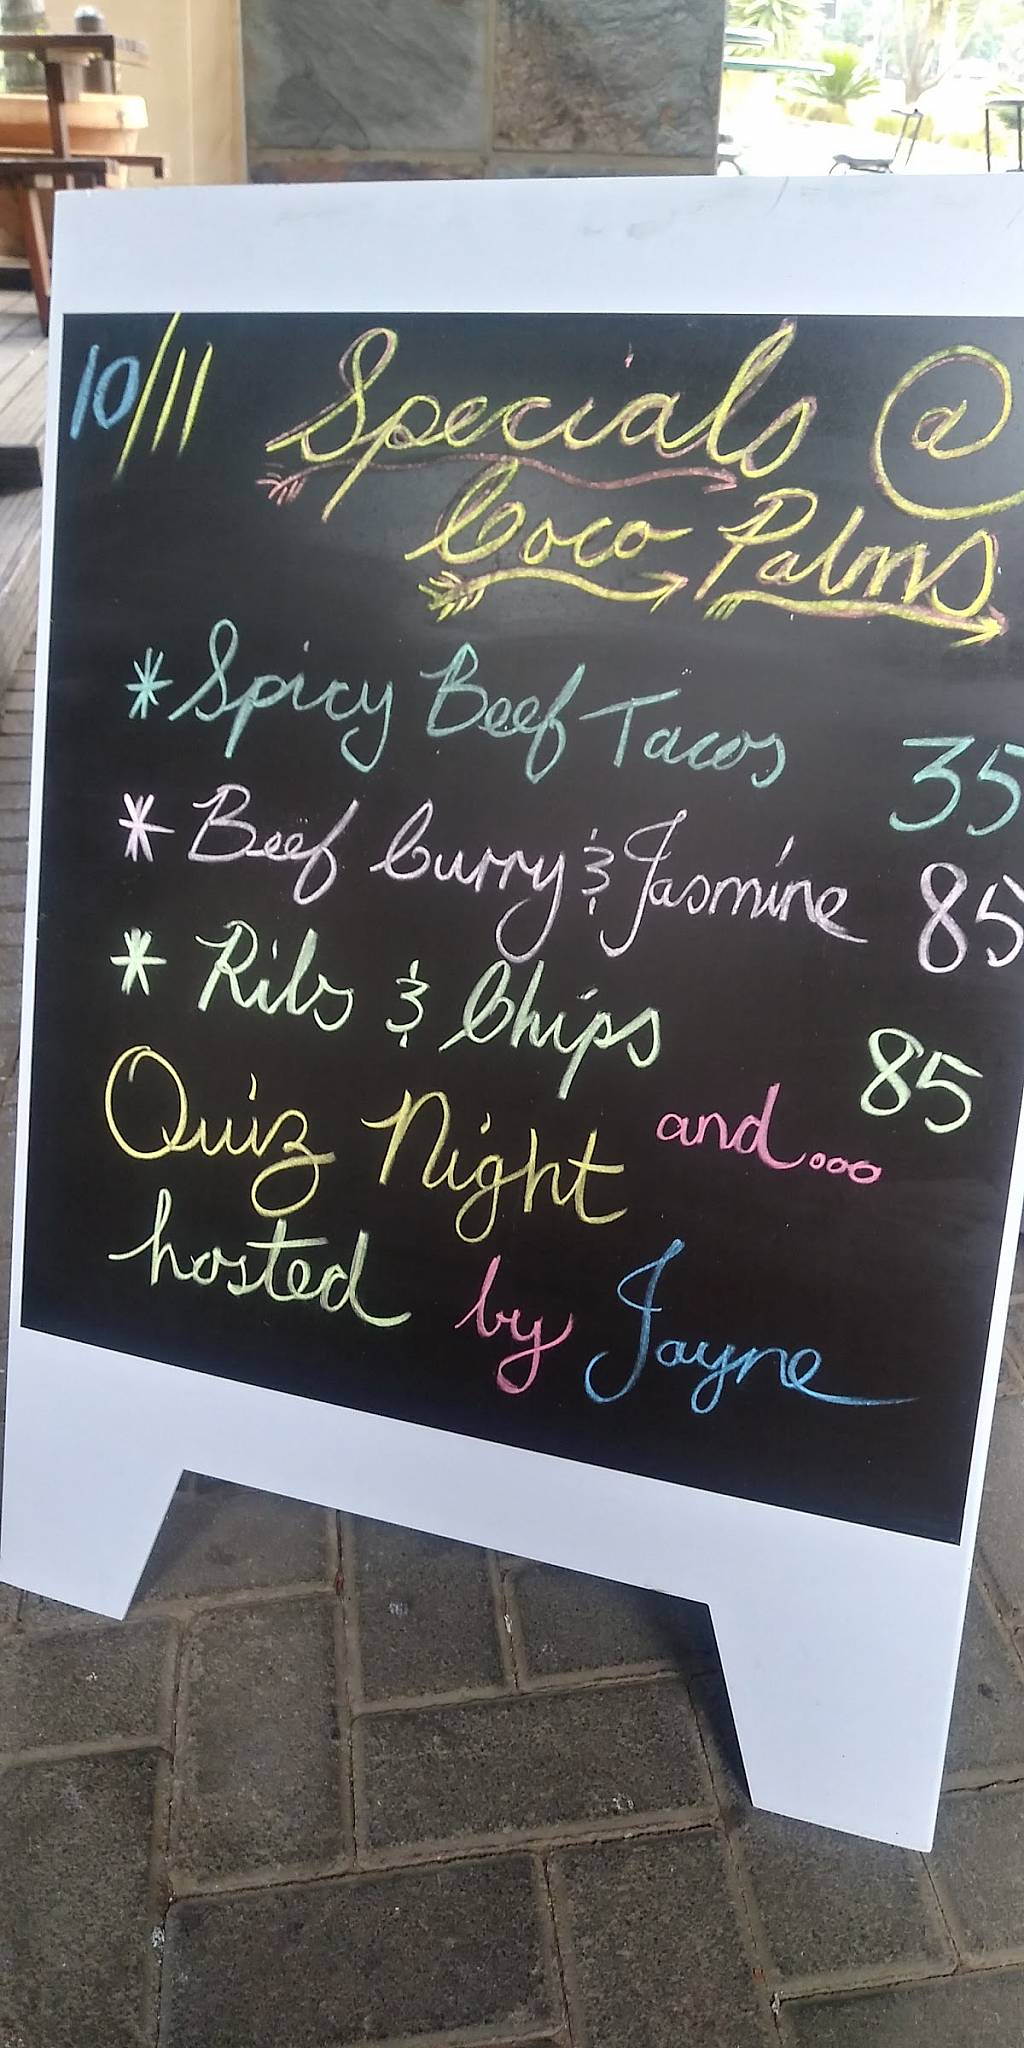 10/11 Specials @
Coco Palms
* Spicy Beef Tacos 35
* Beef Curry & Jasmine 85
* Ribs & Chips 85
Quiz Night and...
hosted by Jayne